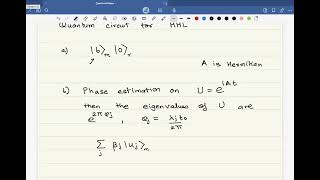 Quantum circuit for HHL
a) |b⟩_m |0⟩_r
A is Hermitian
b) Phase estimation on U = e^{iAt}
then the eigenvalues of U are
e^{2πiφ_j}, φ_j = λ_j t_0 / 2π
Σ_j β_j |u_j⟩_m